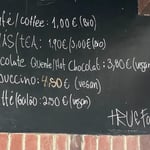 fé/coffee: 1,00€ (BIO)
AS/TEA: 1,90€/3,00€(BIO)
colate Quente/Hot Chocolat: 3,80€ (vegan)
puccino: 4.80€ (vegan)
tté/Galão: 2.90€ (vegan)
#TRUEFO